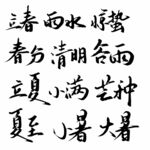 立春 雨水 惊蛰
春分 清明 谷雨
立夏 小满 芒种
夏至 小暑 大暑